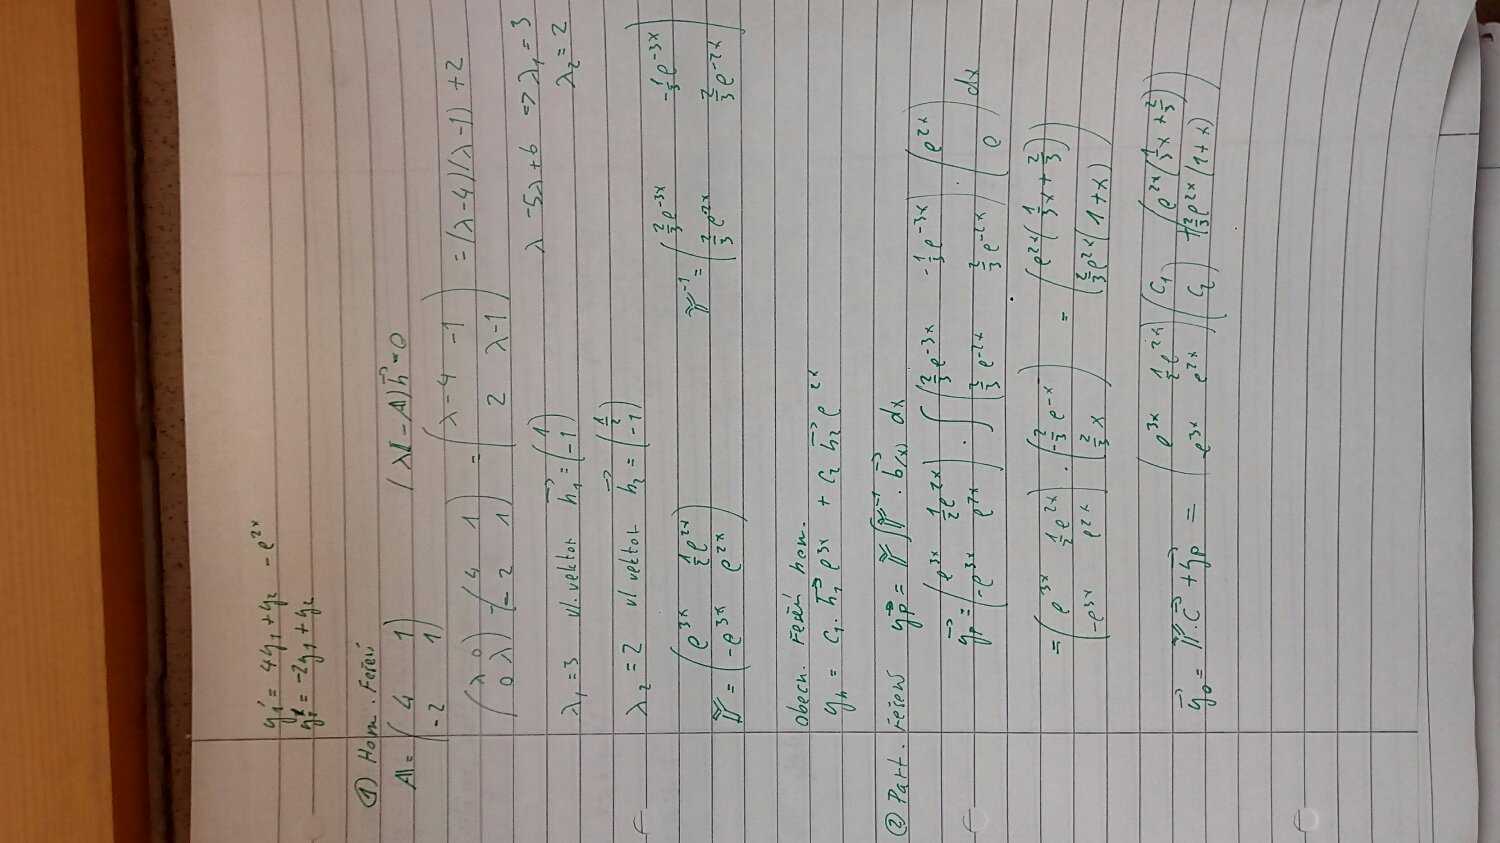 y₁' = 4y₁ + y₂ - e^{2x}
y₂' = -2y₁ + y₂
① Hom. řešení
A = ( 4 1 ; -2 1 ) (λI - A)h⃗ = 0
( λ 0 ; 0 λ ) - ( 4 1 ; -2 1 ) = ( λ-4 -1 ; 2 λ-1 ) = (λ-4)(λ-1) + 2
λ - 5λ + 6 => λ₁ = 3
λ₂ = 2
λ₁ = 3 vl. vektor h⃗₁ = ( 1 ; -1 )
λ₂ = 2 vl vektor h⃗₂ = ( 1/2 ; -1 )
Y = ( e^{3x} 1/2 e^{2x} ; -e^{3x} e^{2x} ) Y^{-1} = ( 2/3 e^{-3x} -1/3 e^{-3x} ; 2/3 e^{-2x} 2/3 e^{-2x} )
obecn. řešení hom.
y_h = C₁ · h⃗₁ e^{3x} + C₂ h⃗₂ e^{2x}
② Part. řešení y⃗_p = Y ∫ Y^{-1} · b⃗(x) dx
y⃗_p = ( e^{3x} 1/2 e^{2x} ; -e^{3x} e^{2x} ) · ∫ ( 2/3 e^{-3x} -1/3 e^{-3x} ; 2/3 e^{-2x} 2/3 e^{-2x} ) · ( e^{2x} ; 0 ) dx
= ( e^{3x} 1/2 e^{2x} ; -e^{3x} e^{2x} ) · ( -2/3 e^{-x} ; 2/3 x ) = ( e^{2x} ( 1/3 x + 2/3 ) ; 2/3 e^{2x} (1+x) )
y⃗₀ = Y · C⃗ + y⃗_p = ( e^{3x} 1/2 e^{2x} ; e^{3x} e^{2x} ) ( C₁ ; C₂ ) + ( e^{2x} ( 1/3 x + 2/3 ) ; 2/3 e^{2x} (1+x) )